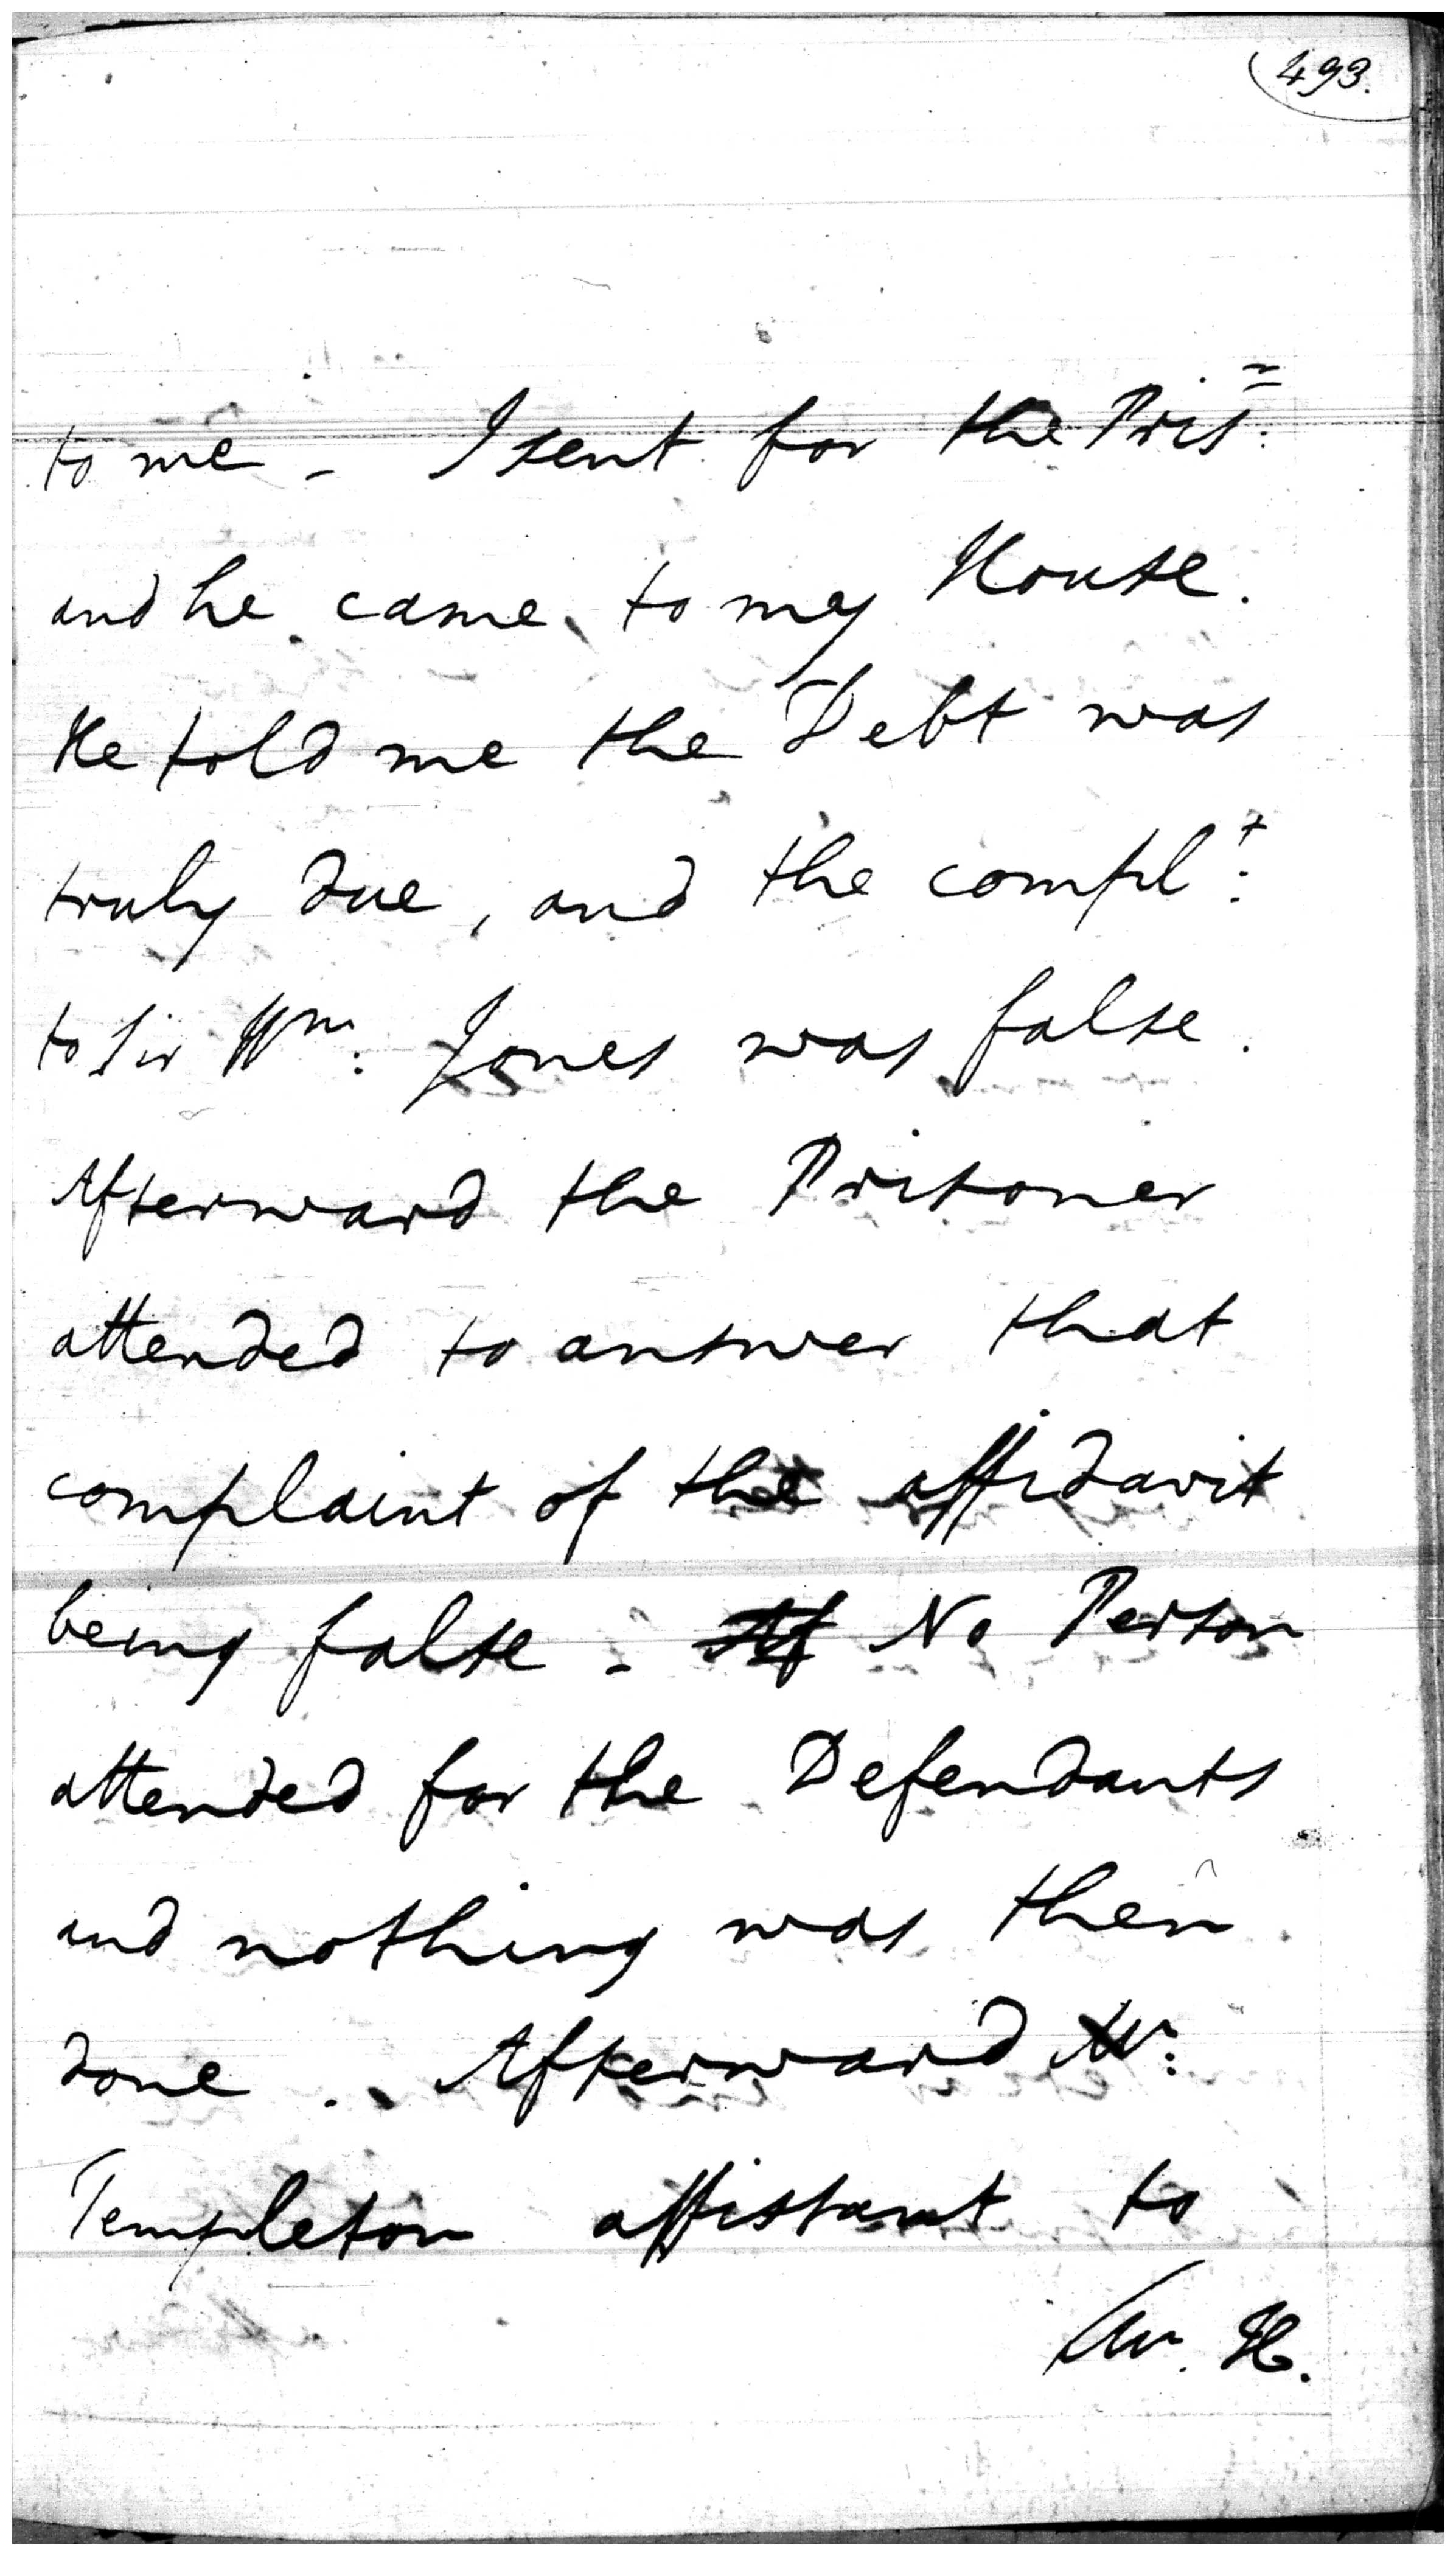 493.
to me - I sent for the Pris:n
and he came to my House.
He told me the Debt was
truly due, and the compl:t
to Sir Wm: Jones was false.
Afterward the Prisoner
attended to answer that
complaint of the affidavit
being false - No Person
attended for the Defendants
and nothing was then
done. Afterward Mr:
Templeton assistant to
Mr. H.